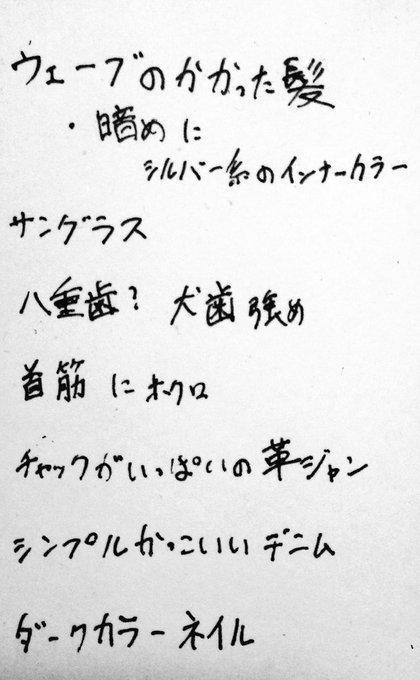 ウェーブのかかった髪
・暗めに
シルバー系のインナーカラー
サングラス
八重歯? 犬歯強め
首筋にホクロ
チャックがいっぱいの革ジャン
シンプルかっこいいデニム
ダークカラーネイル